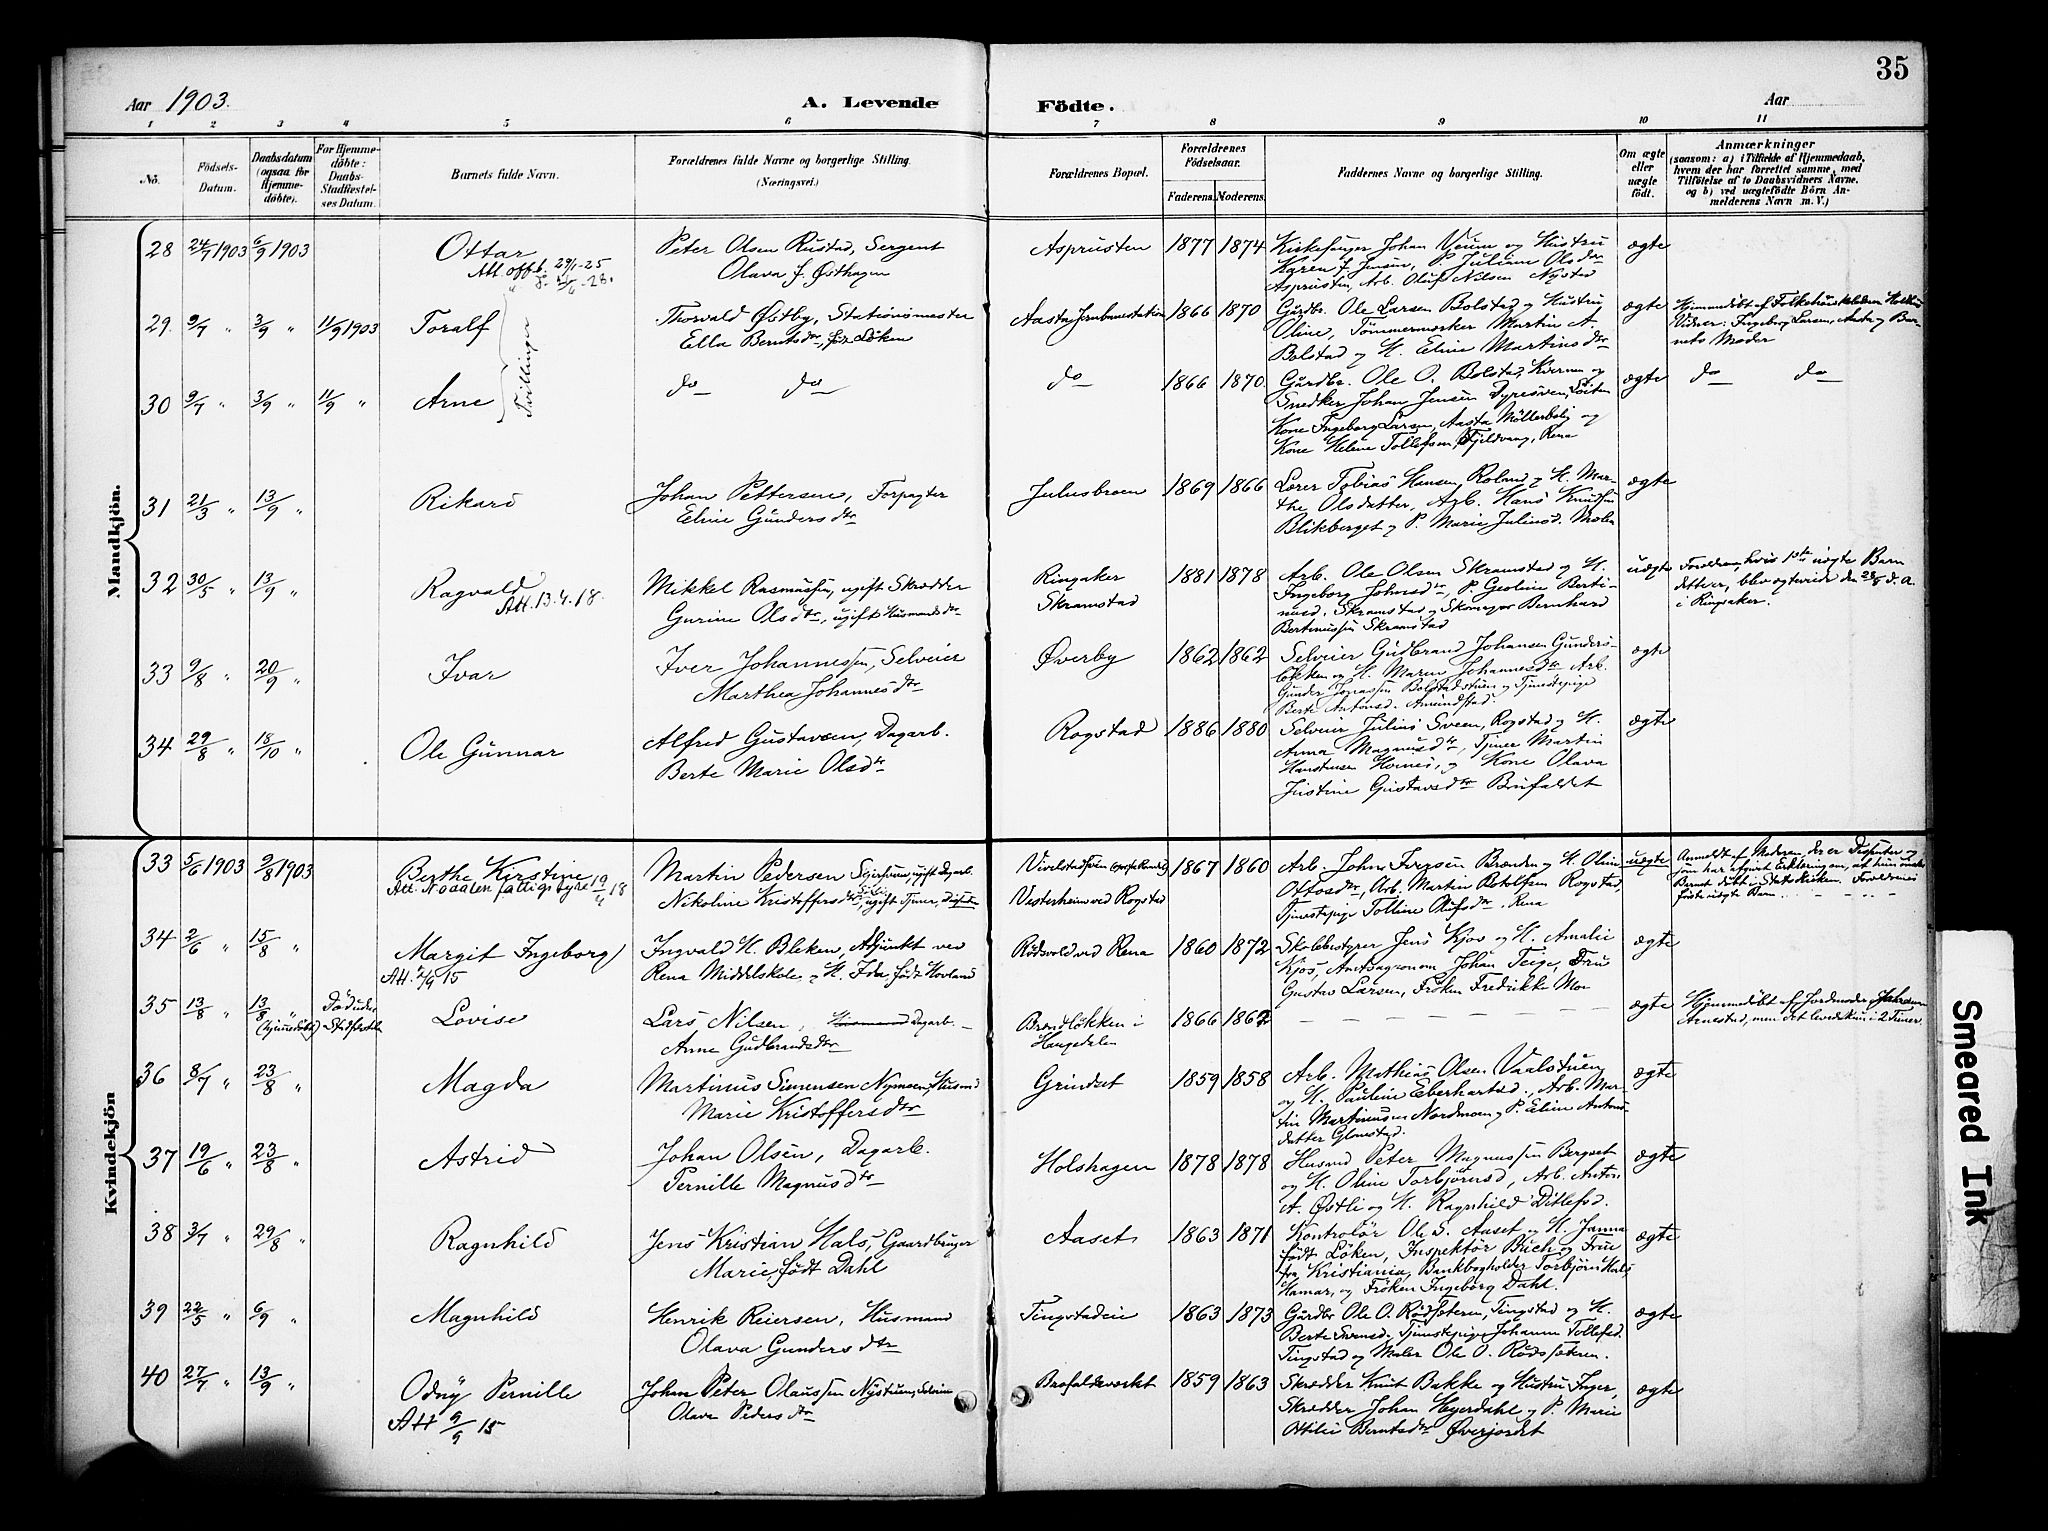 35
Aar 1903.
A. Levende Födte.
Aar
1 2 3 4 5 6 7 8 9 10 11
No.
Födsels-Datum.
Daabsdatum (ogsaa for Hjemme-döbte).
For Hjemme-döbte: Daabs-Stadfæstel-ses Datum.
Barnets fulde Navn.
Forældrenes fulde Navne og borgerlige Stilling. (Næringsvei.)
Forældrenes Bopæl.
Forældrenes Födselsaar.
Faderens. Moderens.
Faddernes Navne og borgerlige Stilling.
Om ægte eller uægte födt.
Anmærkninger
(saasom: a) i Tilfælde af Hjemmedaab,
hvem der har forrettet samme, med
Tilföielse af to Daabsvidners Navne,
og b) ved uægtefödte Börn An-
melderens Navn m. V.)
Mandkjön.
28 24/7 1903 6/9 1903 Ottar
Att. offb. 29/1-25
Peter Olsen Rustad, Sergent
Olava f. Østhagen
Asprusten 1877 1874
Kirkesanger Johan Veum og Hustru
Karen f. Jensen, P. Juliane Olsdtr
Asprusten, Arb. Oluf Nilsen Nystad
ægte
29. 9/7 " 3/9 " 11/9 1903 Toralf
Tvillinger
Thorvald Østby, Stationsmester
Ella Berntsdtr, født Løken
Aasta Jernbanestation 1866 1870
Gårdbr. Ole Larsen Bolstad og Hustru
Oline, Tømmermærker Martin A.
Bolstad og H. Eline Martinsdtr
ægte
Vidner: Ingeborg Larsen, Aasta og Bar-
nets Moder
30 9/7 " 3/9 " 11/9 " Arne
do do
do 1866 1870.
Gårdbr. Ole O. Bolstad, Kverum og
Snedker Johan Jensen Dyresveen, Løiten
Kone Ingeborg Larsen, Aasta Möllerbolig og
Kone Helene Tollefsen, Fjeldvang, Rena
ægte do do
31 21/3 " 13/9 " Rikard
Johan Pettersen, Forpagter
Eline Gundersdtr
Julusbroen 1869 1866
Lærer Tobias Hansen Roland og H. Mar-
the Olsdatter, Arb. Hans Knudsen
Blikberget og P. Marie Juliusd. Moen
ægte
32 30/5 " 13/9 " Ragvald
Att. 13.4.18.
Mikkel Rasmussen, ugift Skrædder
Gurine Olsdtr, ugift Husmandsdtr
Ringsaker
Skramstad
1881 1878
Arb. Ole Olsen Skramstad og H.
Ingeborg Johnsdtr, P. Geoline Berti-
nusd. Skramstad og Skomager Bernhard
Bertinussen Skramstad
uægte
Forældrene, hvis 1ste uægte Barn
dette er, blev ægteviede den 28/8 d. A.
i Ringsaker.
33 9/8 " 20/9 " Ivar
Iver Johannessen, Selveier
Marthea Johannesdtr
Øverby 1862 1862
Selveier Gudbrand Johansen Gunders-
løkken og H. Maren Johannesdtr Arb.
Gunder Jonassen Bolstadstuen og Tjenestepige
Berte Antonsd. Amundstad.
ægte
34 29/8 " 18/10 " Ole Gunnar
Alfred Gustavsen, Dagarb.
Berte Marie Olsdtr
Rogstad 1886 1880
Selveier Julius Sveen, Rogstad og H.
Anna Magnusdtr, Tjener Martin
Hanstensen Hornes, og Kone Olava
Justine Gustavsdtr Brufaldet
ægte
Kvindekjön
33 5/6 1903 9/8 1903 Berthe Kirstine
Att. Nordalen fattigstyre 19/4 18
Martin Pedersen Seiersveen, ugift Dagarb.
Nikoline Kristoffersdtr, ugift Tjener, Dissenter
Vesterheim ved Rogstad
1867 1860
Arb. Johs Iversen Brænden og H. Oline
Ottosdtr, Arb. Martin Botolfsen Rogstad,
Tjenestepige Tolline Olufsdtr, Rena
uægte
Anmeldt af Moderen, der er Dissenter og
som har afgivet Erklæring om, at hun ønsker
Barnet döbt i Statskirken. Forældrenes
förste uægte Barn.
34 2/6 " 15/8 " Margit Ingeborg
Att. 2/9 15
Ingvald H. Bleken, Adjunkt ved
Rena Middelskole og H. Ida født Hovland
Rödsvold ved Rena 1860 1872
Skolebestyrer Jens Kjos og H. Amalie
Kjos, Amtsagronom Johan Teige, Fru
Gustav Larsen, Frøken Fredrikke Moe
ægte
35 13/8 " 13/8 " (Hjemmedöbt) Död uden Stadfæstelse Lovise
Lars Nilsen, Husmand Dagarb.
Anne Gudbrandsdtr
Brændløkken i
Haugedalen
1866 1862
ægte
Hjemmedöbt af Jordmoder Johanne
Arnestad, men det levede kun i 2 Timer.
36 8/7 " 23/8 " Magda
Martinus Simensen Nymoen, Husmd
Marie Kristoffersdtr
Grindset 1859 1858
Arb. Mathias Olsen Vaalstuen
og H. Pauline Eberhartsd., Arb. Mar-
tin Martinusen Nordmoen og P. Eline Antons-
datter Glomstad.
ægte
37 19/6 " 23/8 " Astrid
Johan Olsen, Dagarb.
Pernille Magnusdtr
Holshagen 1878 1878
Husmd Peter Magnussen Berget
og H. Oline Torbjörnsd, Arb. Anton
A. Østli og H. Ragnhild Ditlefsd.
ægte
38 3/7 " 29/8 " Ragnhild
Jens Kristian Hals, Gaardbruger
Marie, født Dahl
Aaset 1863 1871
Kontrolör Ole S. Aaset og H. Janna
født Löken, Inspektör Buch og Frue
fra Kristiania, Bankbogholder Torbjörn Hals,
Hamar, og Fröken Ingeborg Dahl.
ægte
39 22/5 " 6/9 " Magnhild
Henrik Reiersen, Husmand
Olava Gundersdtr
Tingstadeie 1863 1873
Gårdbr Ole O. Rödseteren, Tingstad og H.
Berte Svensd. Tjenestepige Johanne Tollefsd.
Tingstad og Maler Ole O. Rödsseteren.
ægte
40 27/7 " 13/9 " Odny Pernille
Att 9/9 15
Johan Peter Olaussen Nystuen, Selveier
Olava Pedersdtr
Brofaldsverket 1859 1863
Skrædder Knut Bakke og Hustru Inger,
Skrædder Johan Heyerdahl og P. Marie
Otilie Berntsdtr Øverjordet
ægte
Smeared Ink